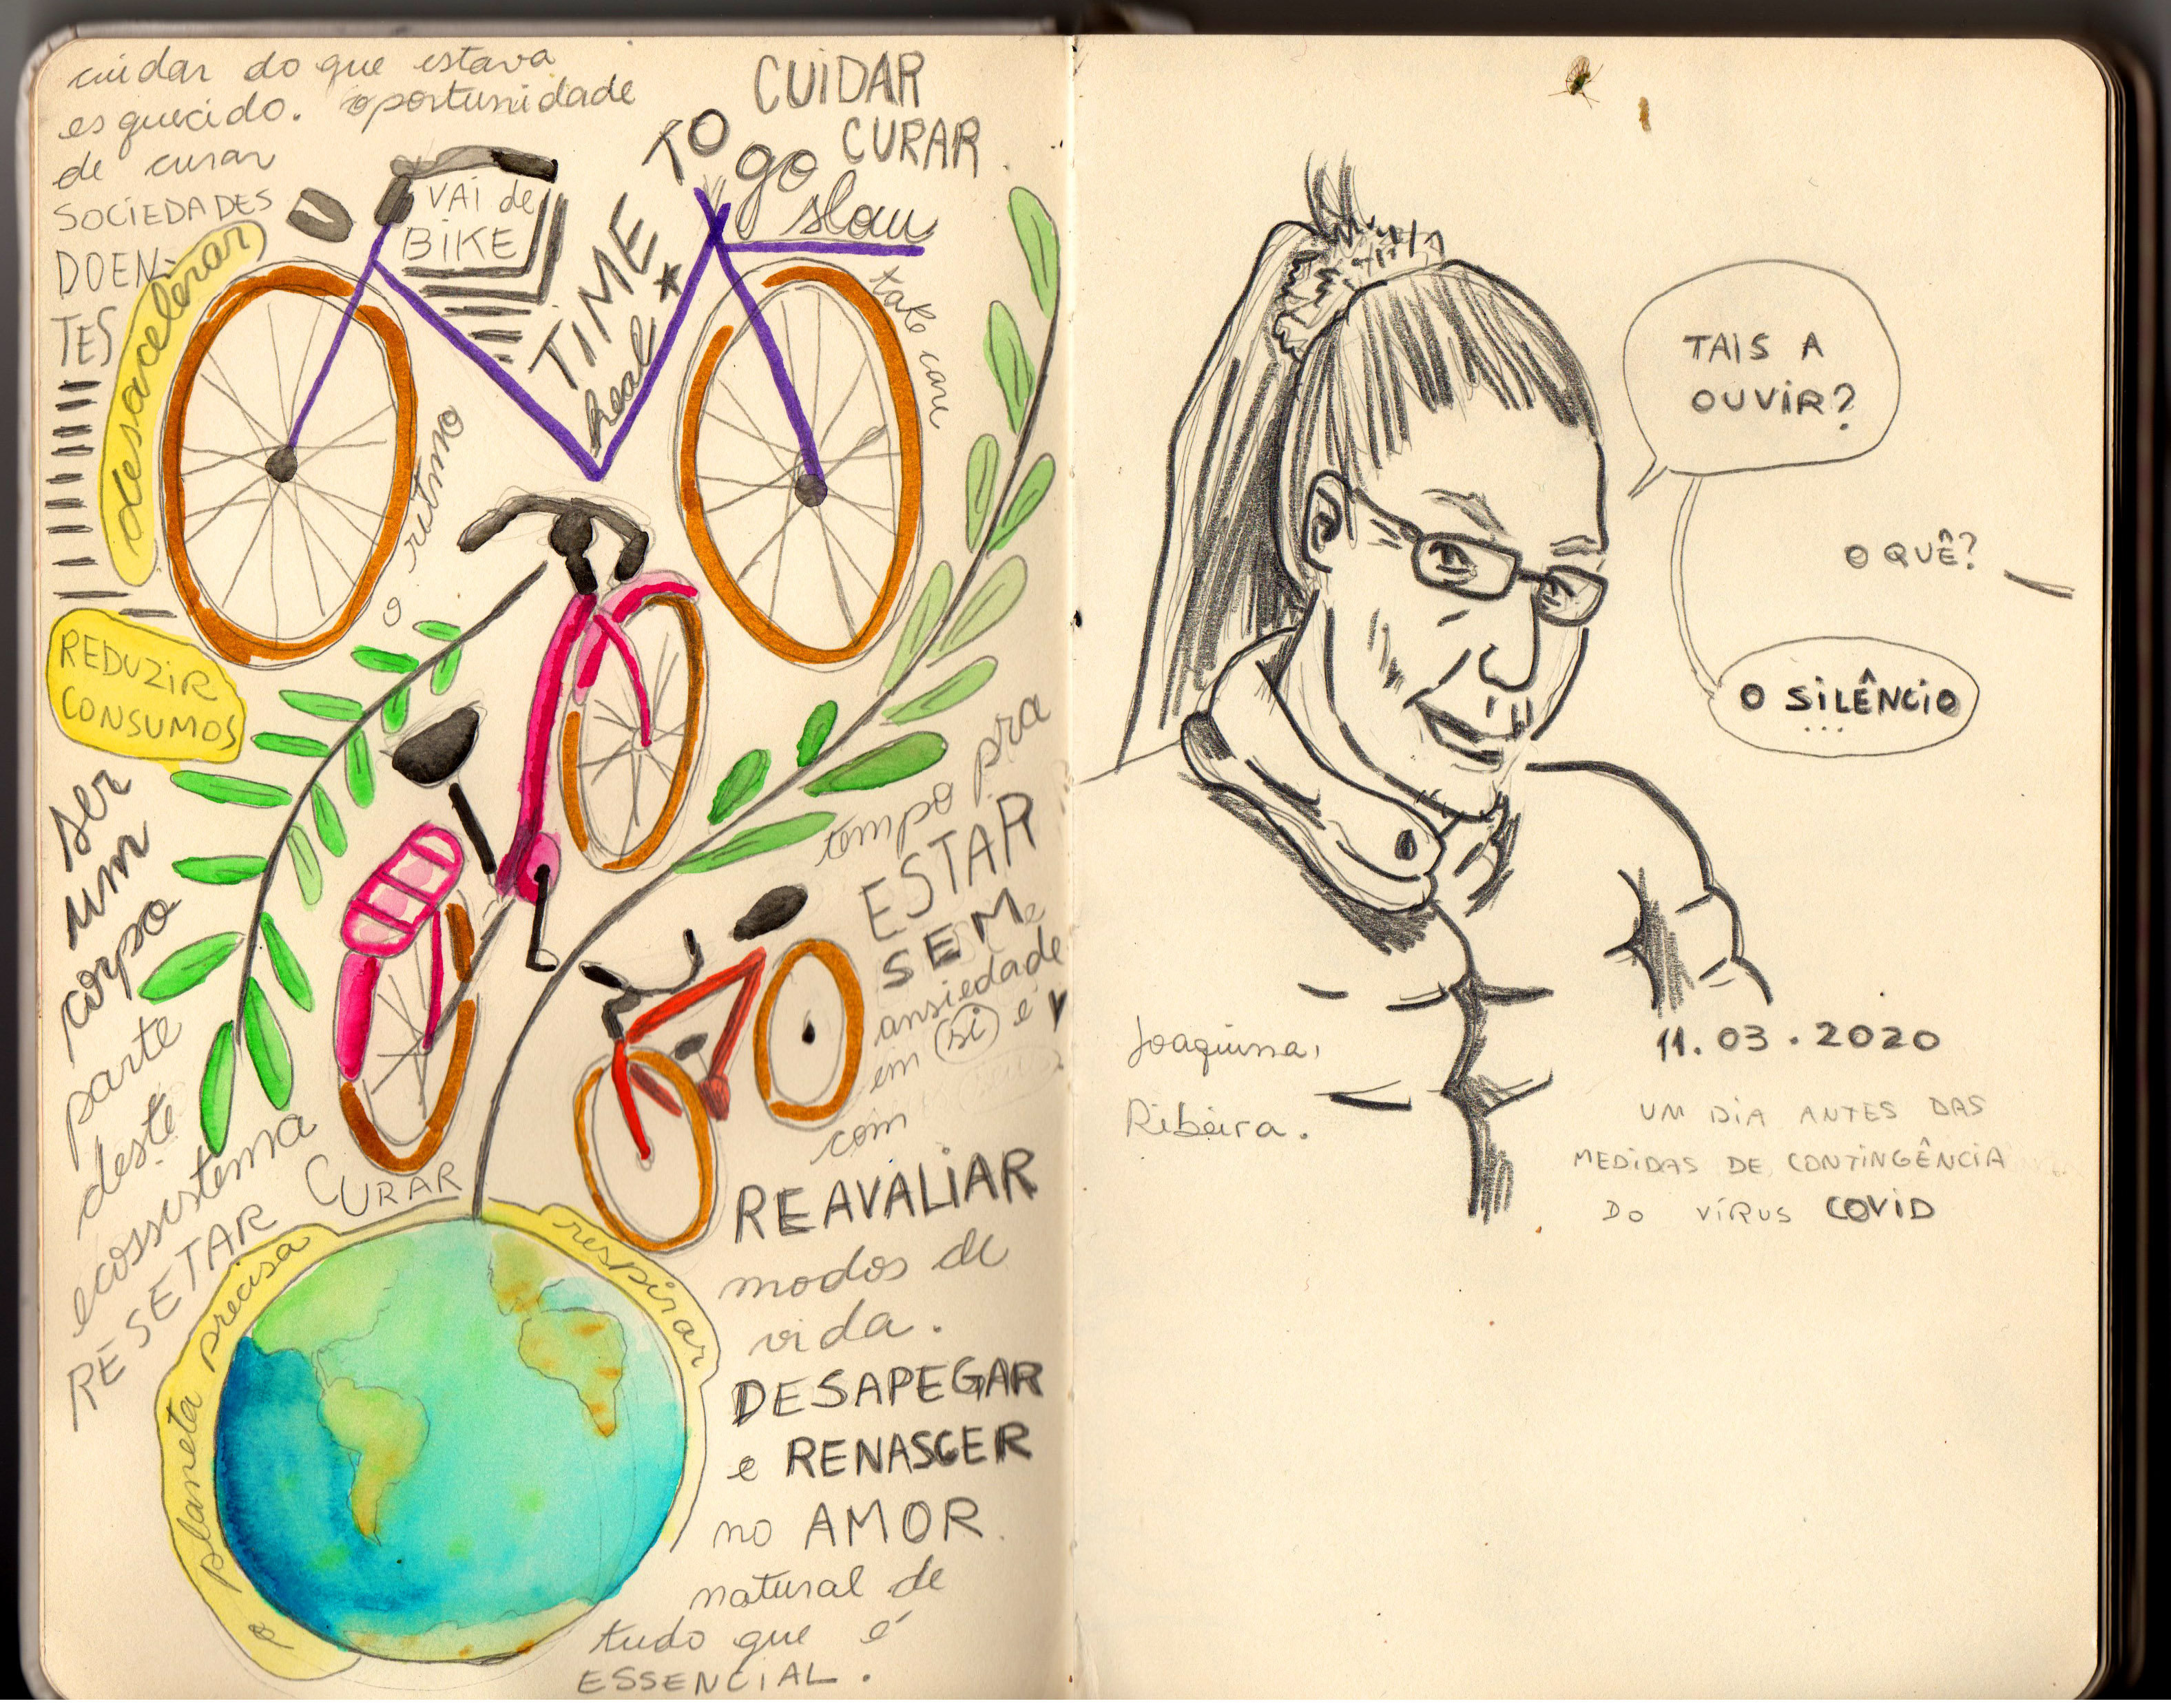 cuidar do que estava
esquecido. oportunidade
de curar
SOCIEDADES
DOEN-
TES
desacelerar
o ritmo
REDUZIR
CONSUMOS
VAI de
BIKE
TIME
real
TO
go
slow
CUIDAR
CURAR
take care
ser
um
corpo
parte
deste
ecossistema
RESETAR
CURAR
o planeta precisa
respirar
tempo pra
ESTAR
SEM
ansiedade
em si e
com
REAVALIAR
modos de
vida.
DESAPEGAR
e RENASCER
no AMOR
natural de
tudo que é
ESSENCIAL.
TAIS A
OUVIR?
O QUÊ?
O SILÊNCIO
...
Joaquina,
Ribeira.
11.03.2020
UM DIA ANTES DAS
MEDIDAS DE CONTINGÊNCIA
DO VÍRUS COVID